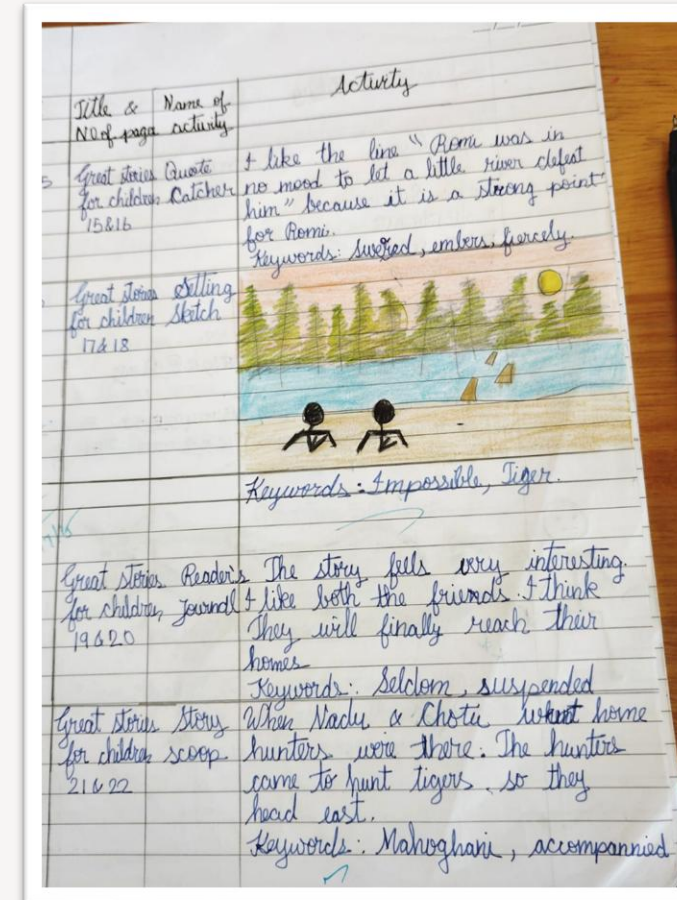 Title &
N0 of page
Name of
activity
Activity
Great stories
for children
15&16
Quote
Catcher
I like the line "Romi was in
no mood to let a little river defeat
him" because it is a strong point
for Romi.
Keywords: Swered, embers, fiercely.
Great stories
for children
17&18
Setting
Sketch
Keywords: Impossible, Tiger.
Great stories
for children
19&20
Reader's
Journal
The story feels very interesting.
I like both the friends. I think
They will finally reach their
homes
Keywords: Seldom, suspended
Great stories
for children
21&22
Story
scoop
When Nadu & Chotu whent home
hunters were there. The hunters
came to hunt tigers so they
head east.
Keywords: Mahoghani, accompannied